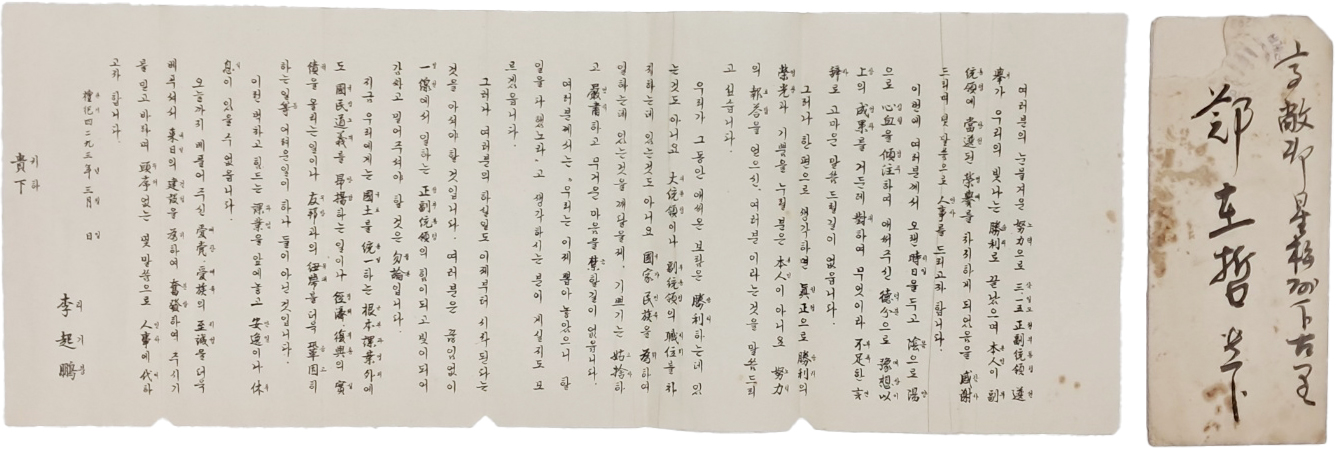 여러분의 눈물겨운 努力으로 三·一五 正副統領 選
擧가 우리의 빛나는 勝利로 끝났으며 本人이 副
統領에 當選된 榮譽를 차지하게 되었음을 感謝
드리며 몇 말씀으로 人事를 드리고자 합니다.
이번에 여러분께서 오랜 時日을 두고 陰으로 陽
으로 心血을 傾注하여 애써주신 德分으로 豫想以
上의 成果를 거둔데 對하여 무엇이라 不足한 言
辭로 고마운 말씀 드릴길이 없읍니다.
그러나 한편으로 생각하면 眞正으로 勝利의
榮光과 기쁨을 누릴 분은 本人이 아니요 努力
의 報答을 얻으신, 여러분 이라는것을 말씀드리
고 싶습니다.
우리가 그동안 애써온 보람은 勝利하는데 있
는것도 아니요 大統領이나 副統領의 職位를 차
지하는데 있는것도 아니요 國家 民族을 爲하여
일하는데 있는것을 깨달을제, 기쁘기는 姑捨하
고 嚴肅하고 무거운 마음을 禁할길이 없읍니다.
여러분께서는 "우리는 이제 뽑아놓았으니 할
일을 다했노라" 고 생각하시는 분이 계실지도 모
르겠읍니다.
그러나 여러분의 하실일도 이제부터 시작된다는
것을 아셔야 할 것입니다. 여러분은 끊임없이
一線에서 일하는 正副統領의 힘이되고 빛이되어
감싸고 밀어주셔야 할 것은 勿論입니다.
지금 우리에게는 國土를 統一하는 根本課業外에
도 國民道義를 昂揚하는 일이나 經濟復興의 實
績을 올리는일이나 友邦과의 紐帶를 더욱 鞏固히
하는일等 어려운일이 하나 둘이 아닌것입니다.
이런 벅차고 힘드는 課業을 앞에놓고 安逸이나 休
息이 있을수 없읍니다.
오늘까지 베풀어 주신 愛黨·愛族의 至誠을 더욱
베푸셔서 來日의 建設을 爲하여 奮發하여 주시기
를 믿고바라며 頭序없는 몇 말씀으로 人事에 代하
고자 합니다.
檀紀四二九三年 三月 日
李起鵬
貴下
鄭在哲 貴下